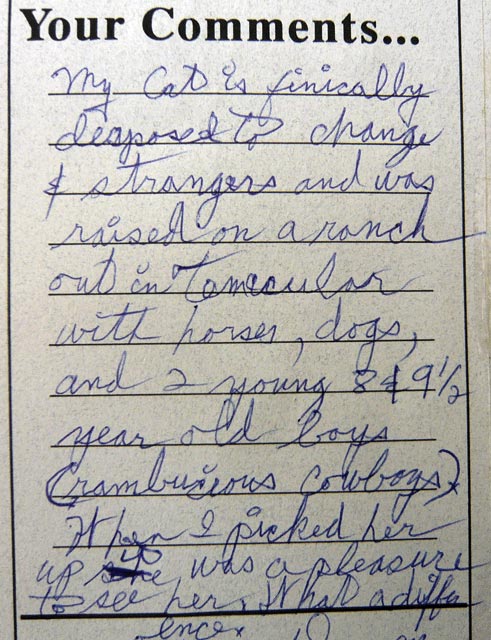 Your Comments...
My Cat is finically
desposed to change
& strangers and was
raised on a ranch
out in Temecular
with horses, dogs,
and 2 young 8 & 9 1/2
year old boys
(rambucious cowboys).
When I picked her
up it was a pleasure
to see her. What a diffe
ence.